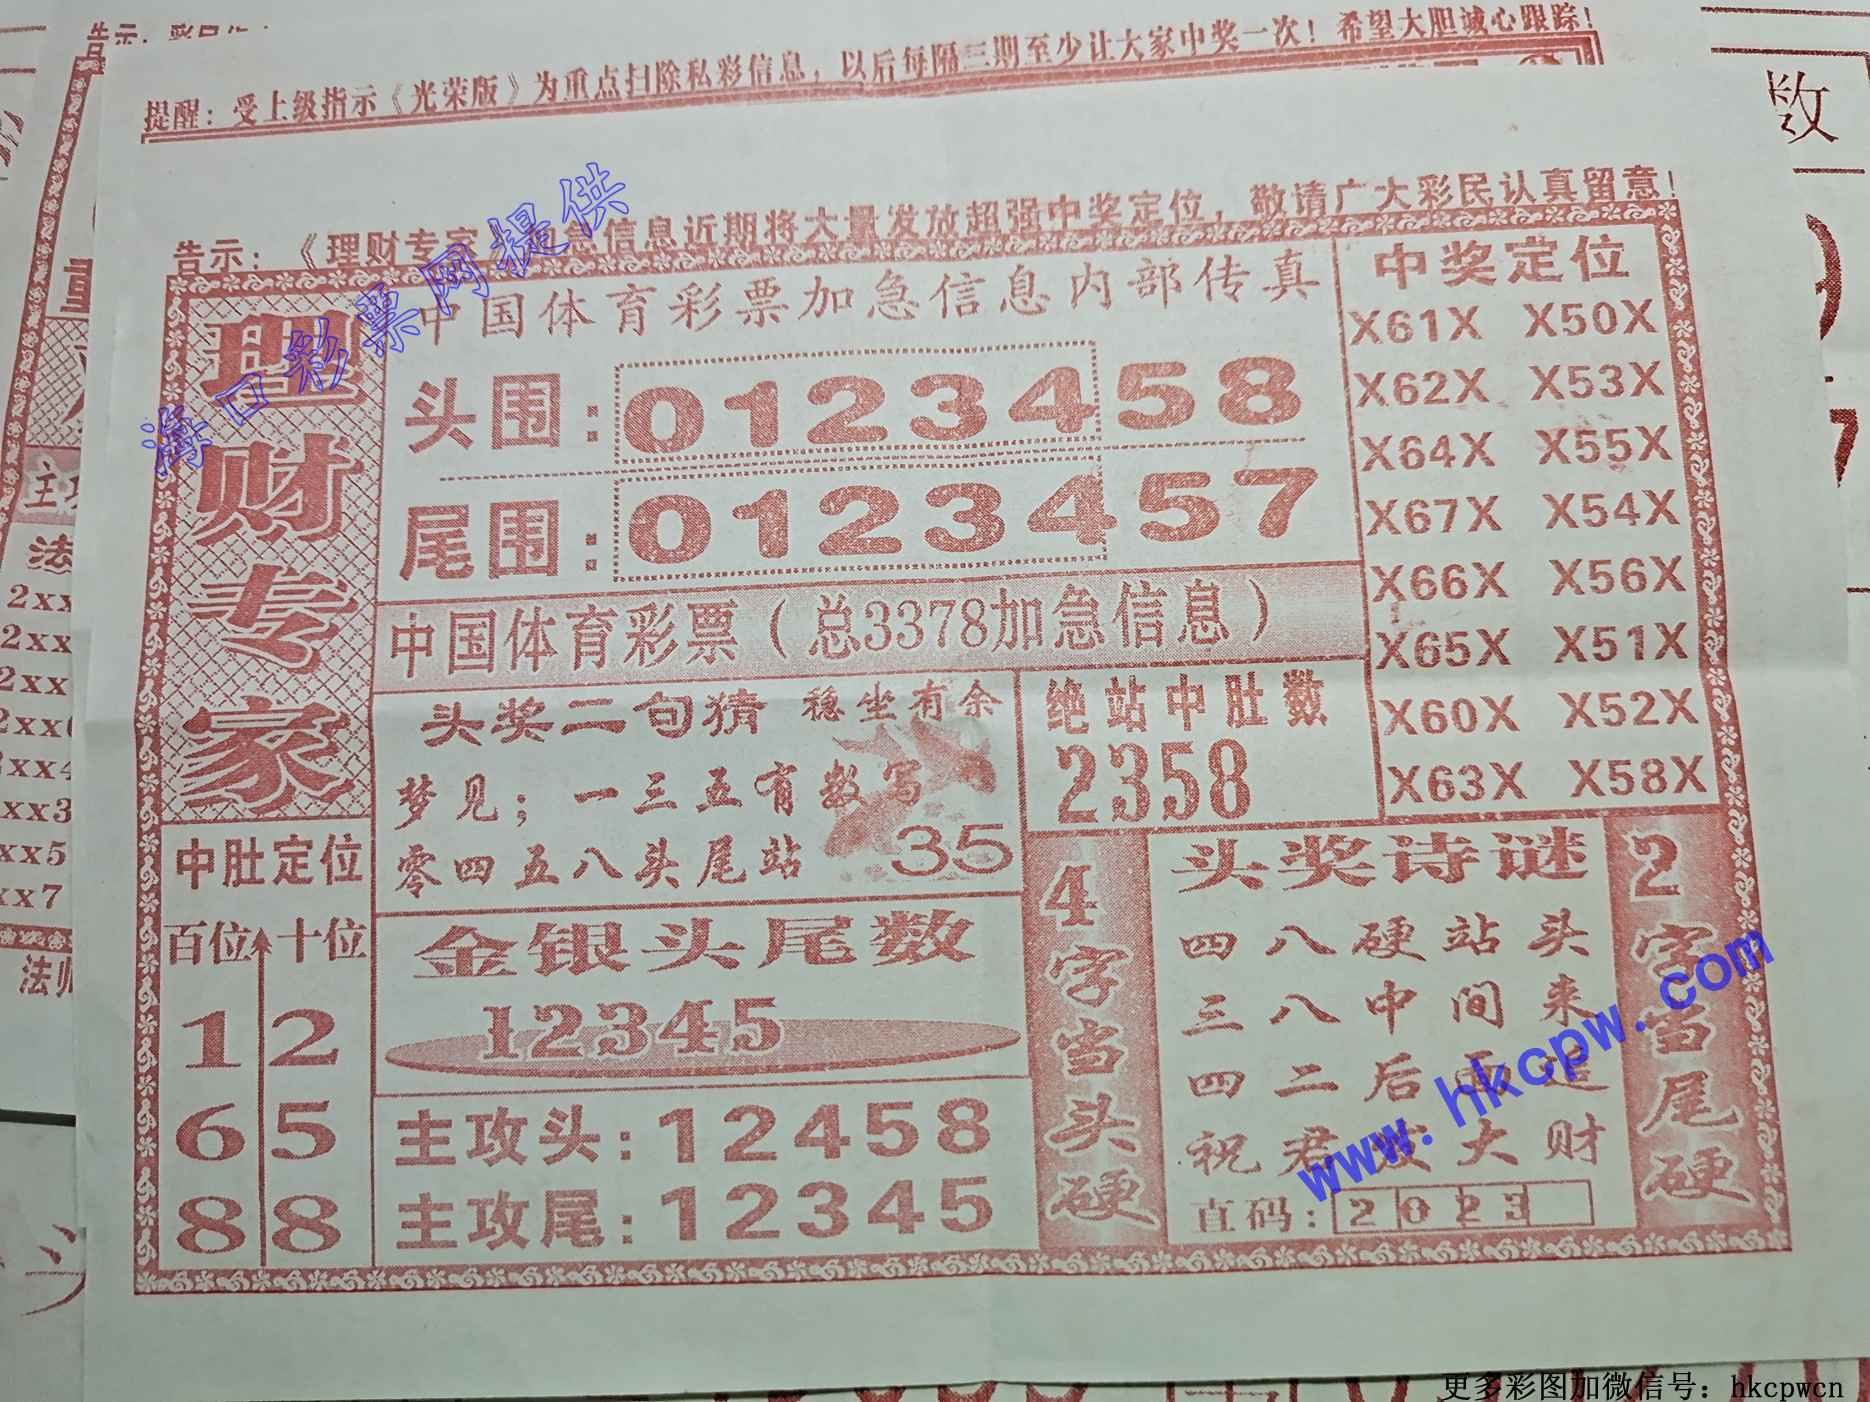 提醒：受上级指示《光荣版》为重点扫除私彩信息，以后每隔三期至少让大家中奖一次！希望大胆诚心跟踪！
数
告示：《理财专家》加急信息近期将大量发放超强中奖定位，敬请广大彩民认真留意！
海口彩票网提供
理财专家
中国体育彩票加急信息内部传真
头围：0123458
尾围：0123457
中国体育彩票（总3378加急信息）
中奖定位
X61X X50X
X62X X53X
X64X X55X
X67X X54X
X66X X56X
X65X X51X
X60X X52X
X63X X58X
头奖二句猜 稳坐有余
梦见；一三五有数写
零四五八头尾站 35
绝站中肚数
2358
中肚定位
百位 十位
1 2
6 5
8 8
金银头尾数
12345
主攻头：12458
主攻尾：12345
4字当头硬
头奖诗谜
四八硬站头
三八中间来
四二后再追
祝君发大财
直码：2023
2字当尾硬
www.hkcpw.com
主攻
2xx
2xx
2xx
xx3
xx5
xx7
更多彩图加微信号：hkcpwcn